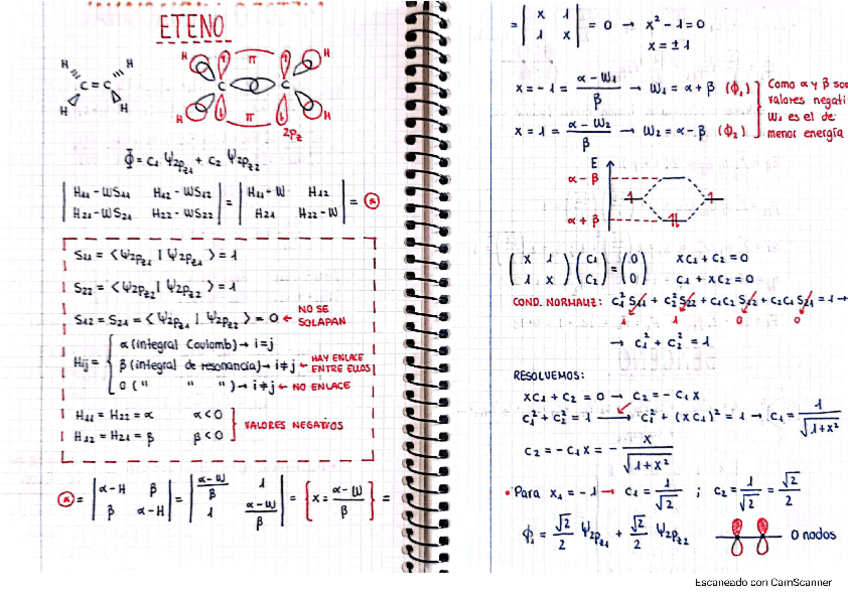 ETENO
H H
C = C
H H
H π H
C C
H π H
2Pz
Φ = c₁ Ψ2pz1 + c₂ Ψ2pz2
| H₁₁ - WS₁₁ H₁₂ - WS₁₂ | = | H₁₁ - W H₁₂ | = *
| H₂₁ - WS₂₁ H₂₂ - WS₂₂ | | H₂₁ H₂₂ - W |
S₁₁ = ⟨Ψ2pz1 | Ψ2pz1⟩ = 1
S₂₂ = ⟨Ψ2pz2 | Ψ2pz2⟩ = 1
S₁₂ = S₂₁ = ⟨Ψ2pz1 | Ψ2pz2⟩ = 0 ← NO SE SOLAPAN
Hij = { α (integral Coulomb) → i=j
β (integral de resonancia) → i≠j ← HAY ENLACE ENTRE ELLOS
0 ( " " " ) → i≠j ← NO ENLACE
H₁₁ = H₂₂ = α α<0
H₁₂ = H₂₁ = β β<0 } VALORES NEGATIVOS
* = | α-H β | = | (α-W)/β 1 | = { x = (α-W)/β } =
| β α-H | | 1 (α-W)/β |
= | x 1 | = 0 → x² - 1 = 0
| 1 x | x = ±1
x = -1 = (α - W₁)/β → W₁ = α + β (Φ₁)
x = 1 = (α - W₂)/β → W₂ = α - β (Φ₂)
Como α y β so
valores negati
W₁ es el de
menor energía
E
α - β
α + β
( x 1 ) ( c₁ ) = ( 0 ) xc₁ + c₂ = 0
( 1 x ) ( c₂ ) ( 0 ) c₁ + xc₂ = 0
COND. NORMALIZ: c₁² S₁₁ + c₂² S₂₂ + c₁c₂ S₁₂ + c₂c₁ S₂₁ = 1 →
1 1 0 0
→ c₁² + c₂² = 1
RESOLVEMOS:
xc₁ + c₂ = 0 → c₂ = - c₁ x
c₁² + c₂² = 1 → c₁² + (xc₁)² = 1 → c₁ = 1/√(1+x²)
c₂ = - c₁x = - x/√(1+x²)
• Para x₁ = -1 → c₁ = 1/√2 ; c₂ = 1/√2 = √2/2
Φ₁ = √2/2 Ψ2pz1 + √2/2 Ψ2pz2 0 nodos
Escaneado con CamScanner